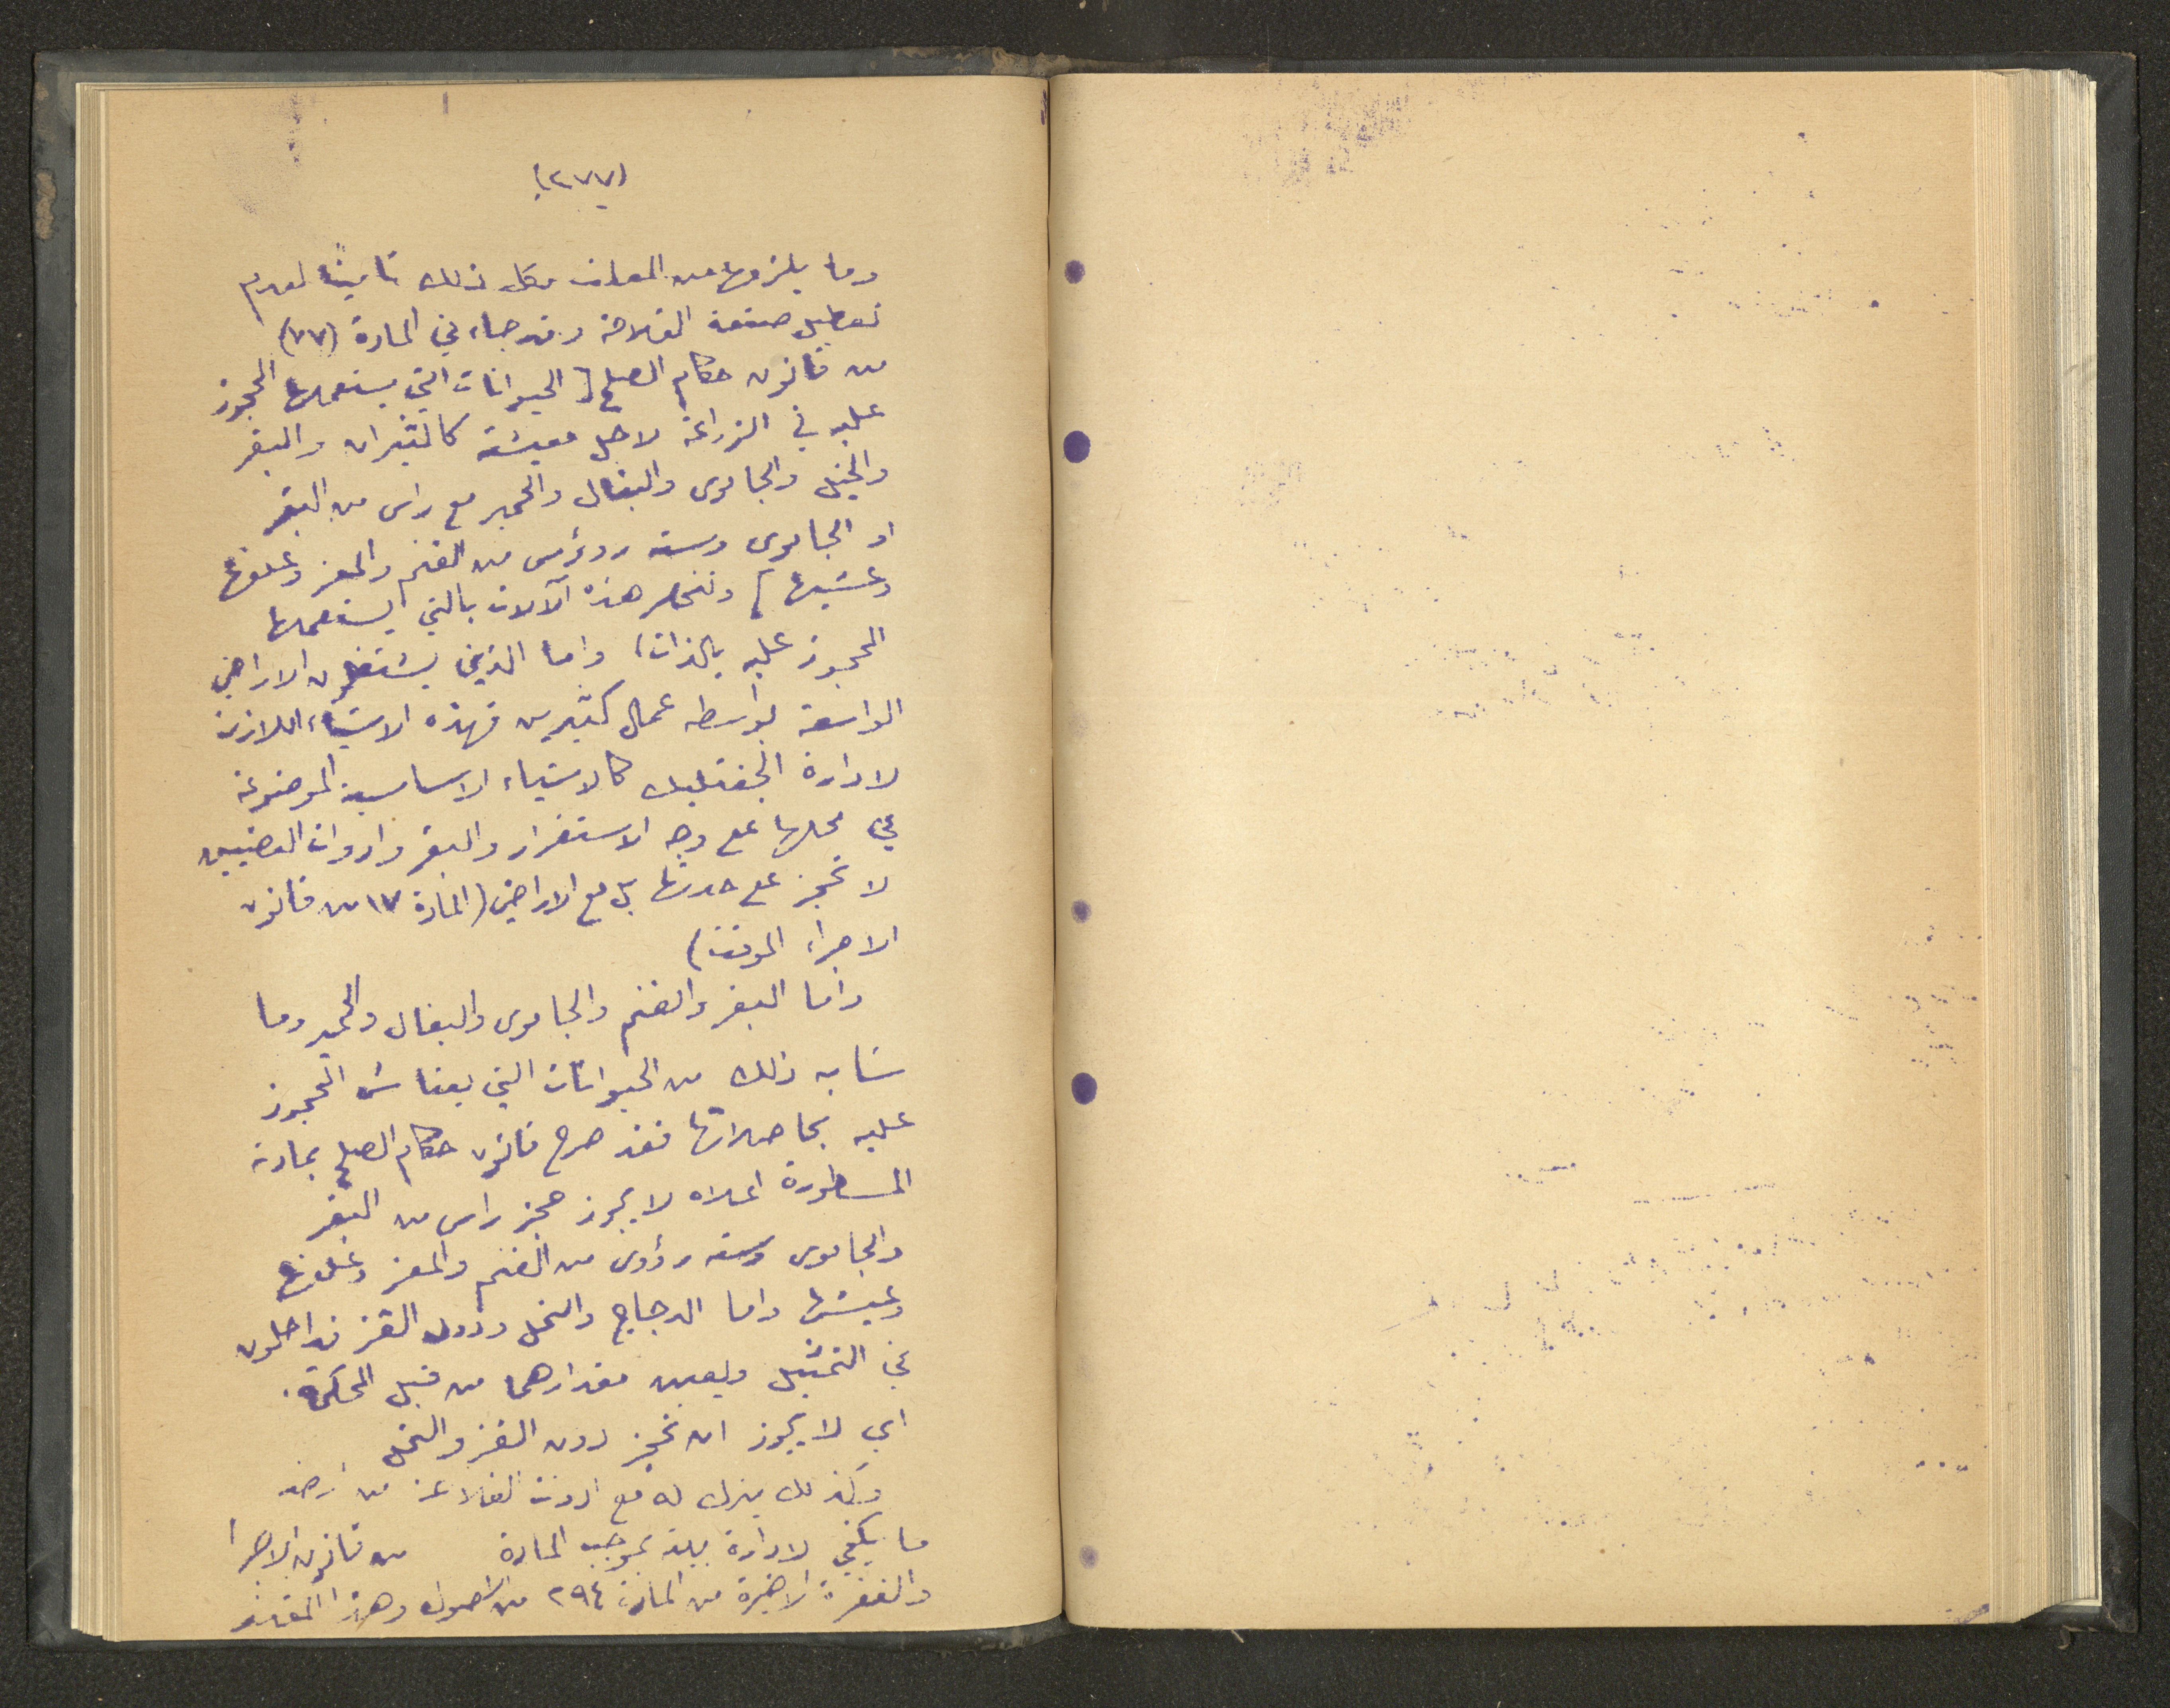 (٢٧٧)
وما يلزمها من المعدات وكل ذلك تاميناً لعدم
تعطيل صنعة الفلاحة وقد جاء في المادة (٧٧)
من قانون حكام الصلح [ الحيوانات التي يستعملها المحجوز
عليه في الزراعة لاجل معيشة كالثيران والبقر
والخيل والجاموس والبغال والحمير مع راس من البقر
او الجاموس وسته روؤس من الغنم والمعز وعلفها
وعشبها ] وتنحصر هذه الآلات بالتي يستعملها
المحجوز عليه بالذات، واما الذين يشتغلون الاراضي
الواسعة بواسطه عمال كثيرين فهذه الاشياء اللازمة
لادارة الجفتليك كالاشياء الاساسية الموضوعة
في محلها على وجه الاستقرار والبقر وادوات
لا تحجز على حدتها بل مع الاراضي (المادة ١٧ من قانون
الاجراء الموقت)
واما البقر والغنم والجاموس والبغال والحمير وما
شابه ذلك من الحيوانات التي يعتاش المحجوز
عليه بحاصلاتها فقد صرح قانون حكام الصلح بمادته
المسطورة اعلاه لا يجوز حجز راس من البقر
والجاموس وسته رؤوس من الغنم والمعز وعلفها
وعيشها واما الدجاج والنحل ودود القز فداخلون
في التمثيل ويعين مقدارهما من قبل المحكمة.
اي لا يجوز ان تحجز دود القز والنحل
وكذلك يترك له مع ادوات الفلاحة من ارضه
ما يكفي لادارة بيته بموجب المادة من قانون الاجرا
والفقرة الاخيرة من المادة ٢٩٤ من اصول وهذا